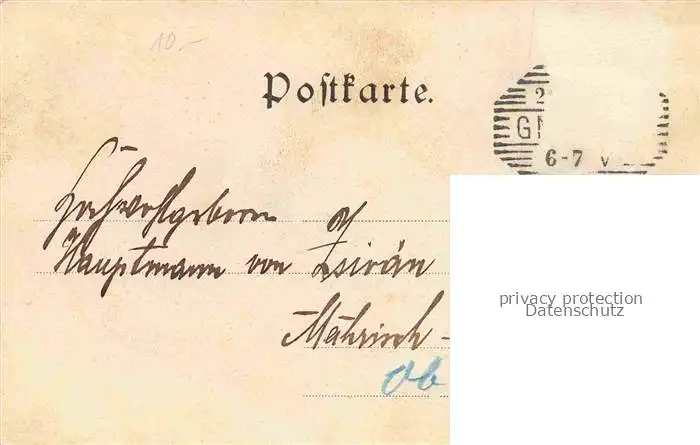 10.-
Postkarte.
2
GM
6-7 V
Hochwohlgeboren
Hauptmann von Zsiván
Mährisch-
Ob
privacy protection
Datenschutz